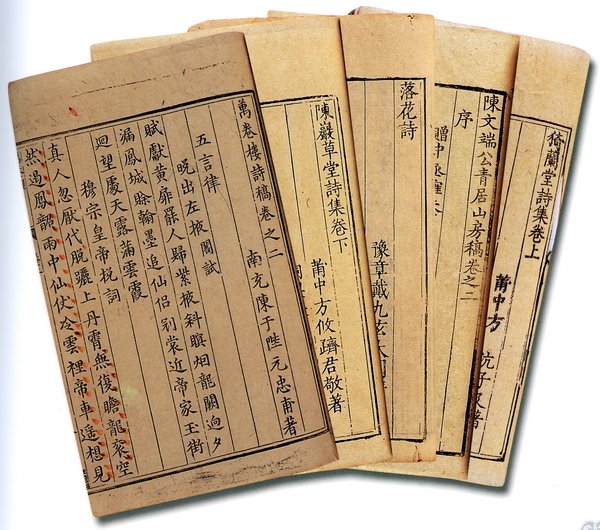 猗蘭堂詩集卷上
莆中方 沆子及著
陳文端公青居山房稿卷之二
序
贈中丞
落花詩
豫章戴九玄
陳巖草堂詩集卷下
莆中方攸躋君敬著
萬卷樓詩稿卷之二
南充陳于陛元忠甫著
五言律
晚出左掖閣試
賦獻黃扉罷人歸紫掖斜暝烟龍闕迥夕
漏鳳城賖翰墨追仙侶别裳近帝家玉街
迴望處天露滿雲霞
穆宗皇帝挽詞
真人忽厭代脫屣上丹霄無復瞻龍衮空
然過鳳韶雨中仙仗冷雲裡帝車遥想見